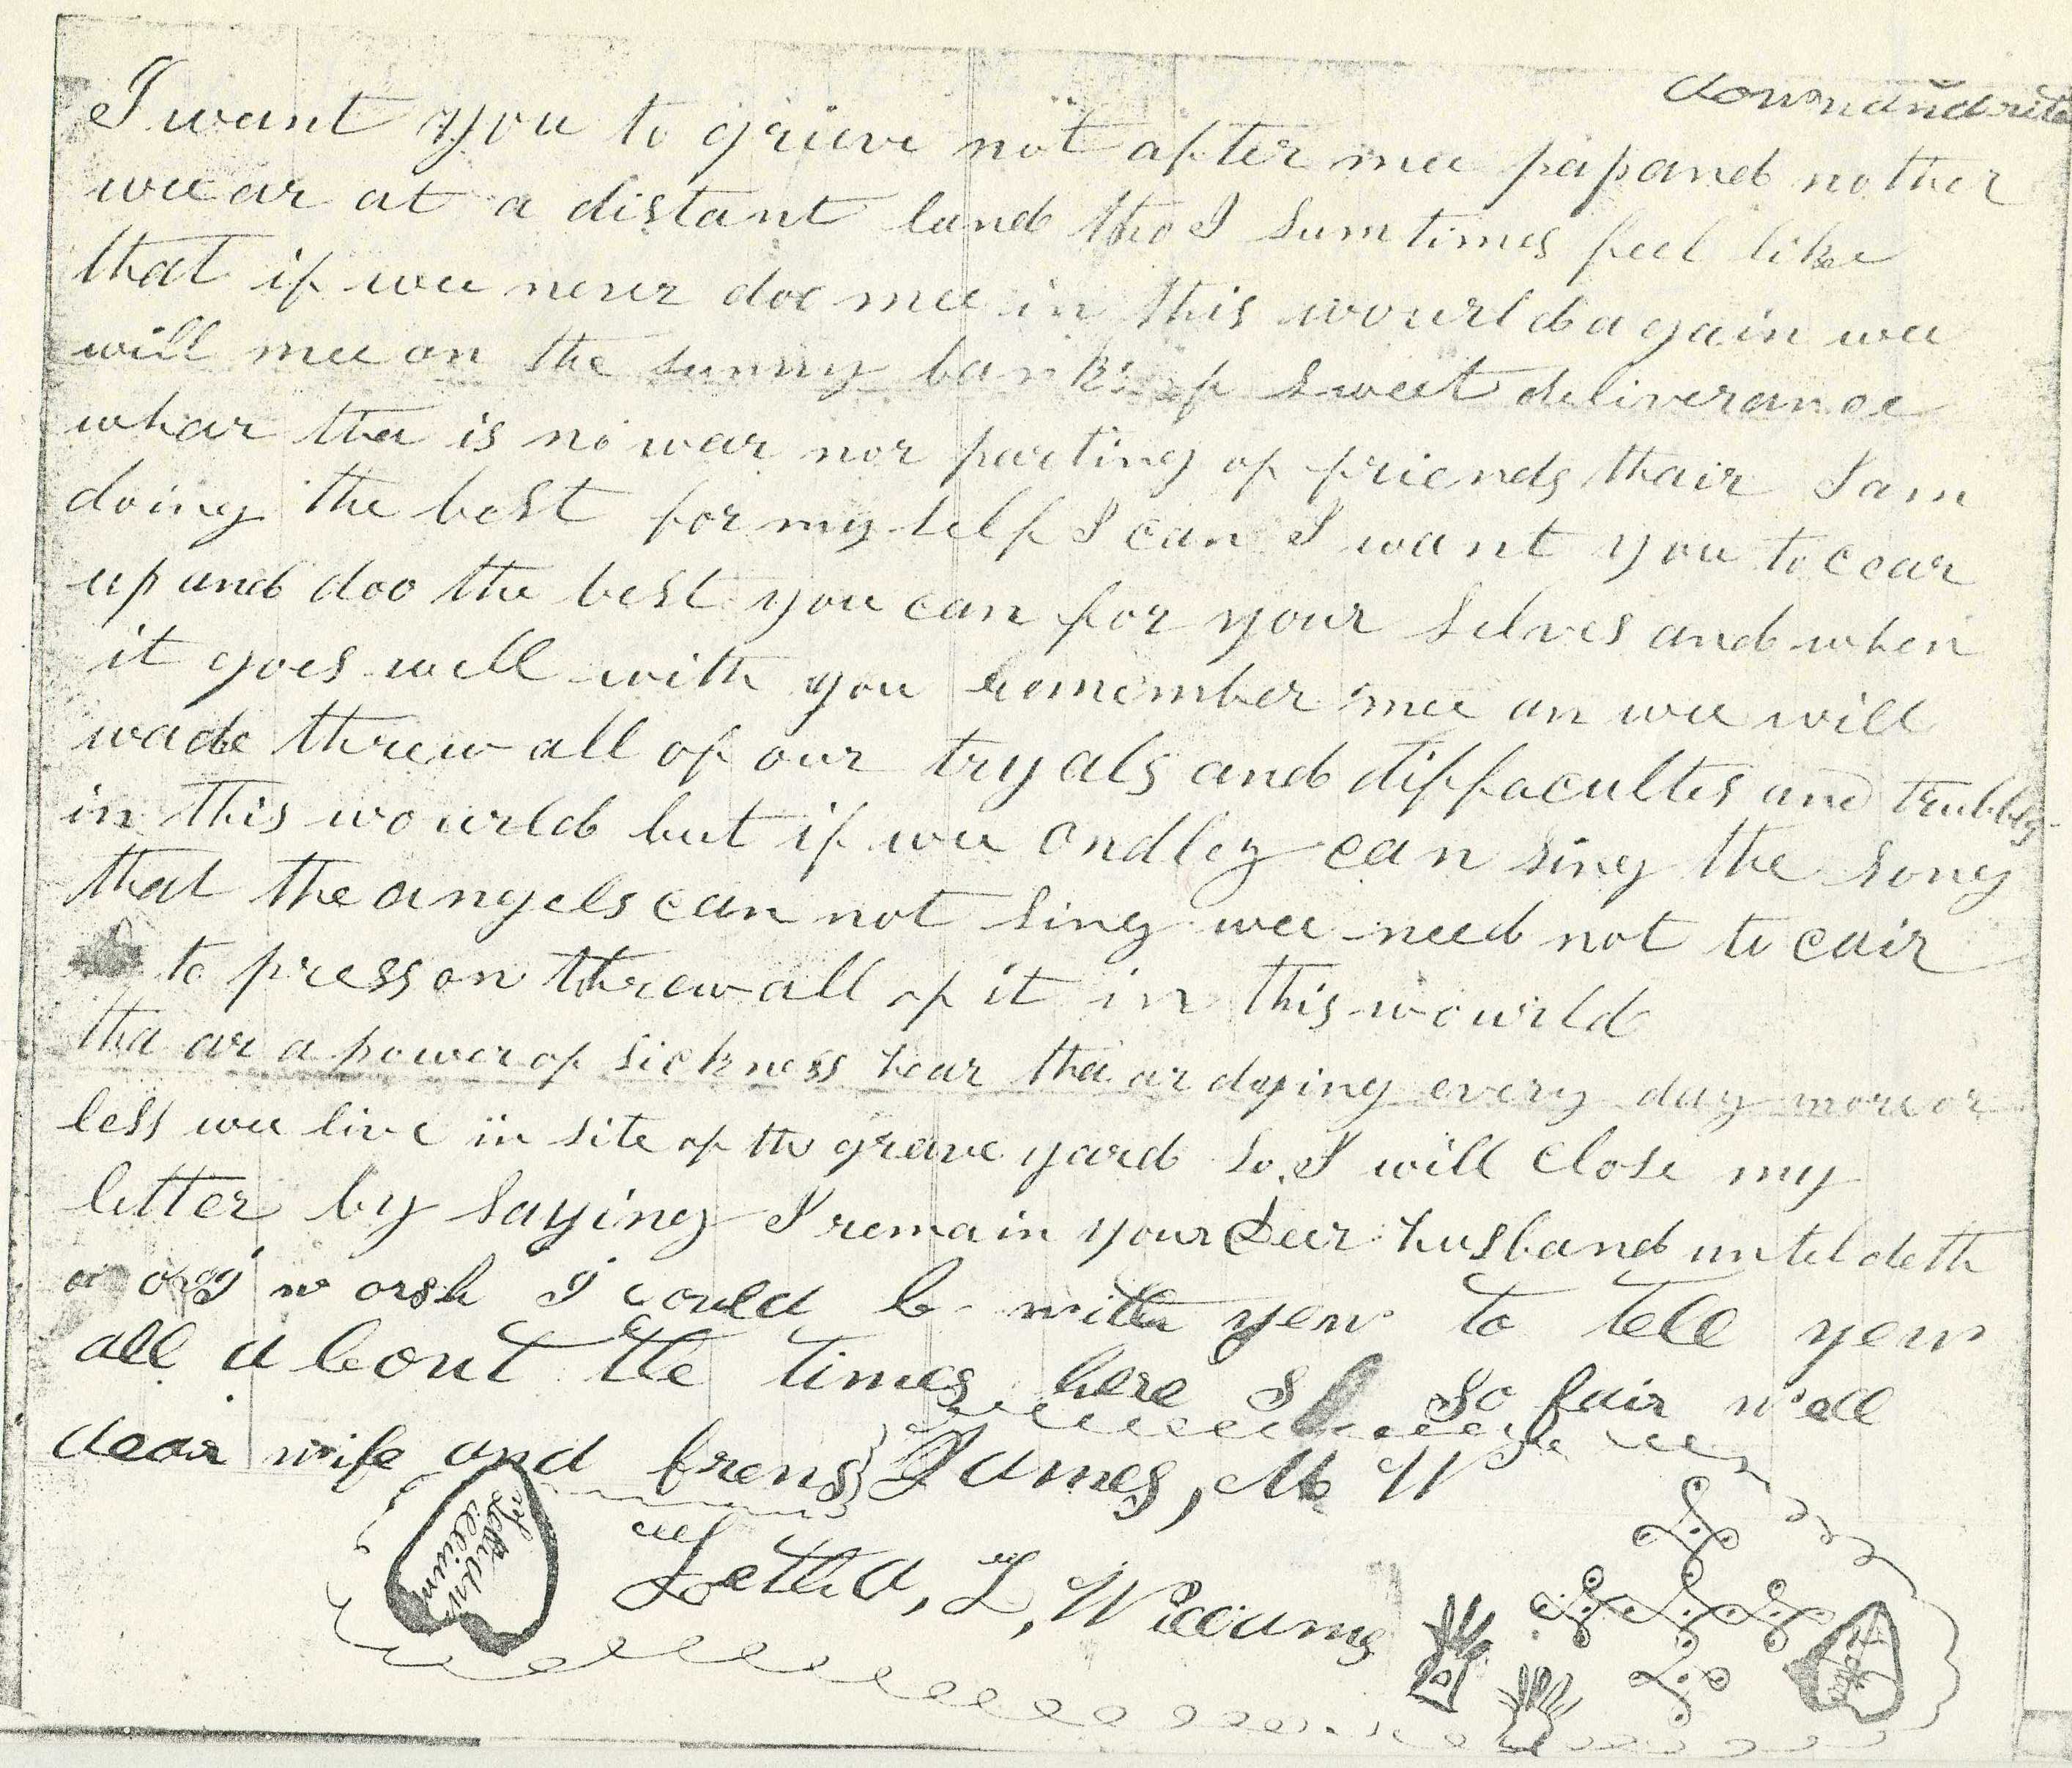 down and rite
I want you to grieve not after mee pap and mother
wee ar at a distant land tho I sumtimes feel like
that if wee never doe mee in this wourld again wee
will mee on the sunny banks of sweet deliverance
whar tha is no war nor parting of friends thair I am
doing the best for my self I can I want you to cear
up and doo the best you can for your selves and when
it goes well with you remember mee an wee will
wade threw all of our tryals and diffacultes and trubbls
in this wourld but if wee ondley can sing the song
that the angels can not sing wee need not to cair
to press on threw all of it in this wourld
tha ar a power of sickness hear tha ar dying every day more or
less wee live in site of the grave yard so I will close my
letter by saying I remain your deer husband untel deth
I worsh I could b with yew to tell yew
all about the times here so fair well
dear wife and frens James, M W
Letha, L, Williams